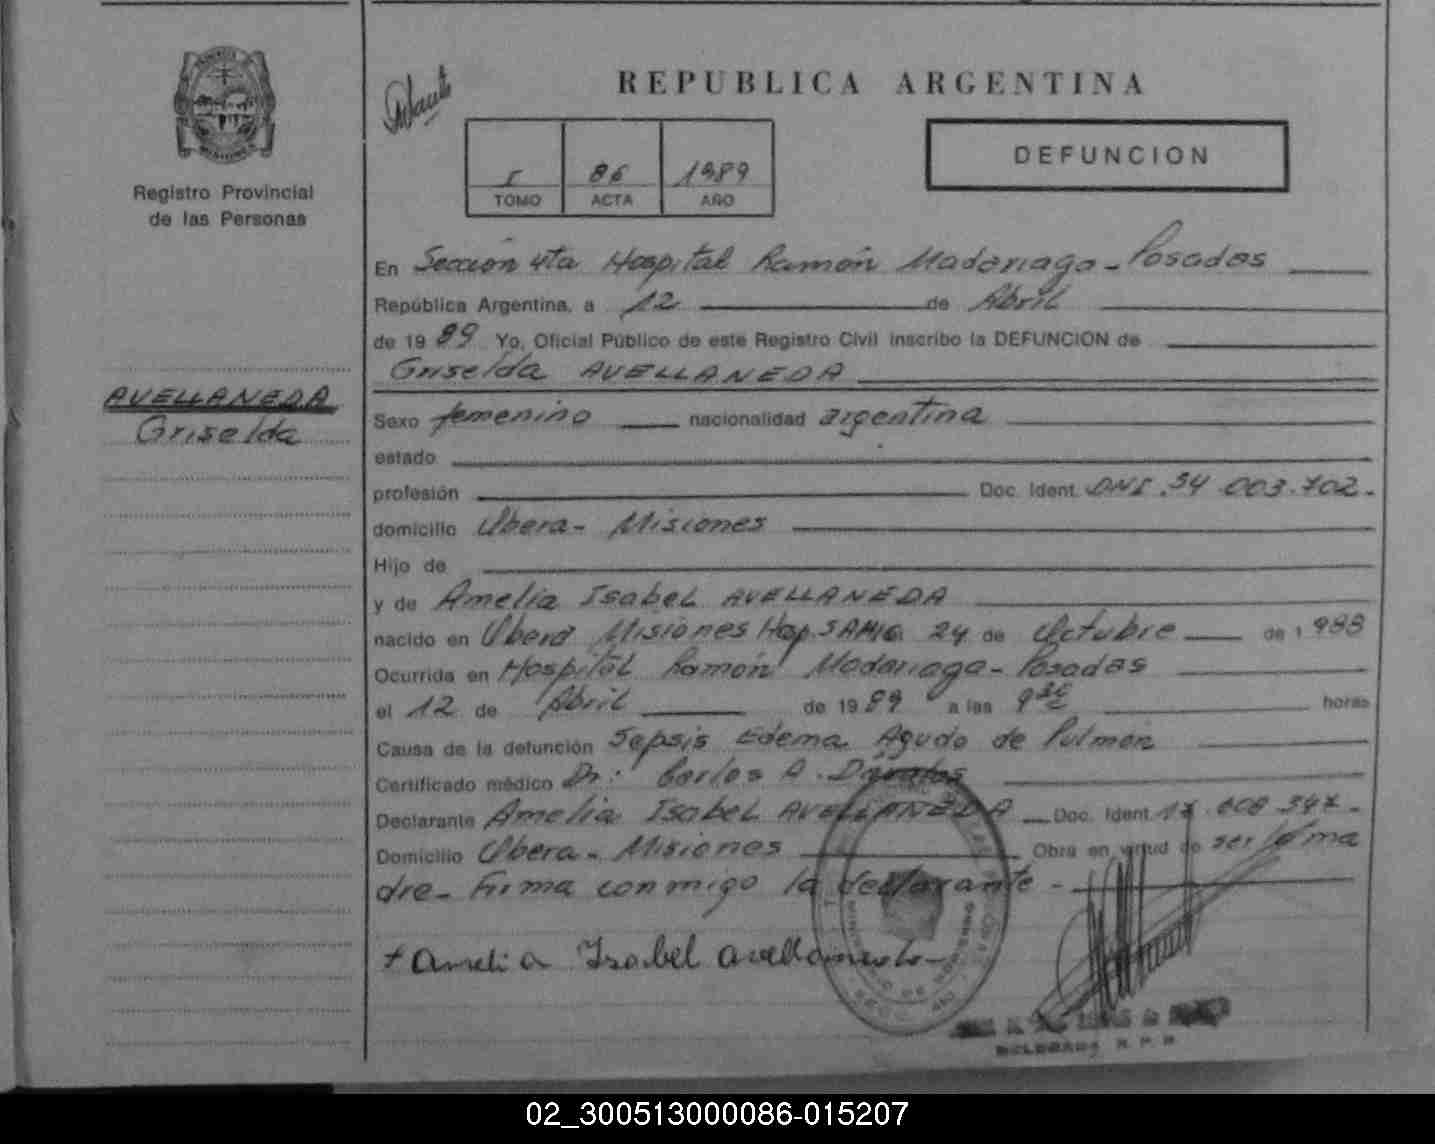 Registro Provincial
de las Personas
AVELLANEDA
Griselda
REPUBLICA ARGENTINA
DEFUNCION
I 86 1989
TOMO ACTA AÑO
En Sección 4ta Hospital Ramón Madariaga - Posadas
República Argentina, a 12 de Abril
de 19 89 Yo, Oficial Público de este Registro Civil inscribo la DEFUNCION de
Griselda AVELLANEDA
Sexo femenino nacionalidad argentina
estado
profesión Doc. Ident. DNI. 34.003.702.-
domicilio Obera - Misiones
Hijo de
y de Amelia Isabel AVELLANEDA
nacido en Oberá Misiones Hosp. SAMIC 24 de Octubre de 1 988
Ocurrida en Hospital Ramón Madariaga - Posadas
el 12 de Abril de 19 89 a las 9 30 horas
Causa de la defunción Sepsis Edema Agudo de Pulmón
Certificado médico Dr: Carlos A.
Declarante Amelia Isabel AVELLANEDA Doc. Ident. 17.608.347.-
Domicilio Obera - Misiones Obra en virtud de ser la ma
dre - Firma conmigo la declarante -
+ Amelia Isabel avellaneda
02_300513000086-015207